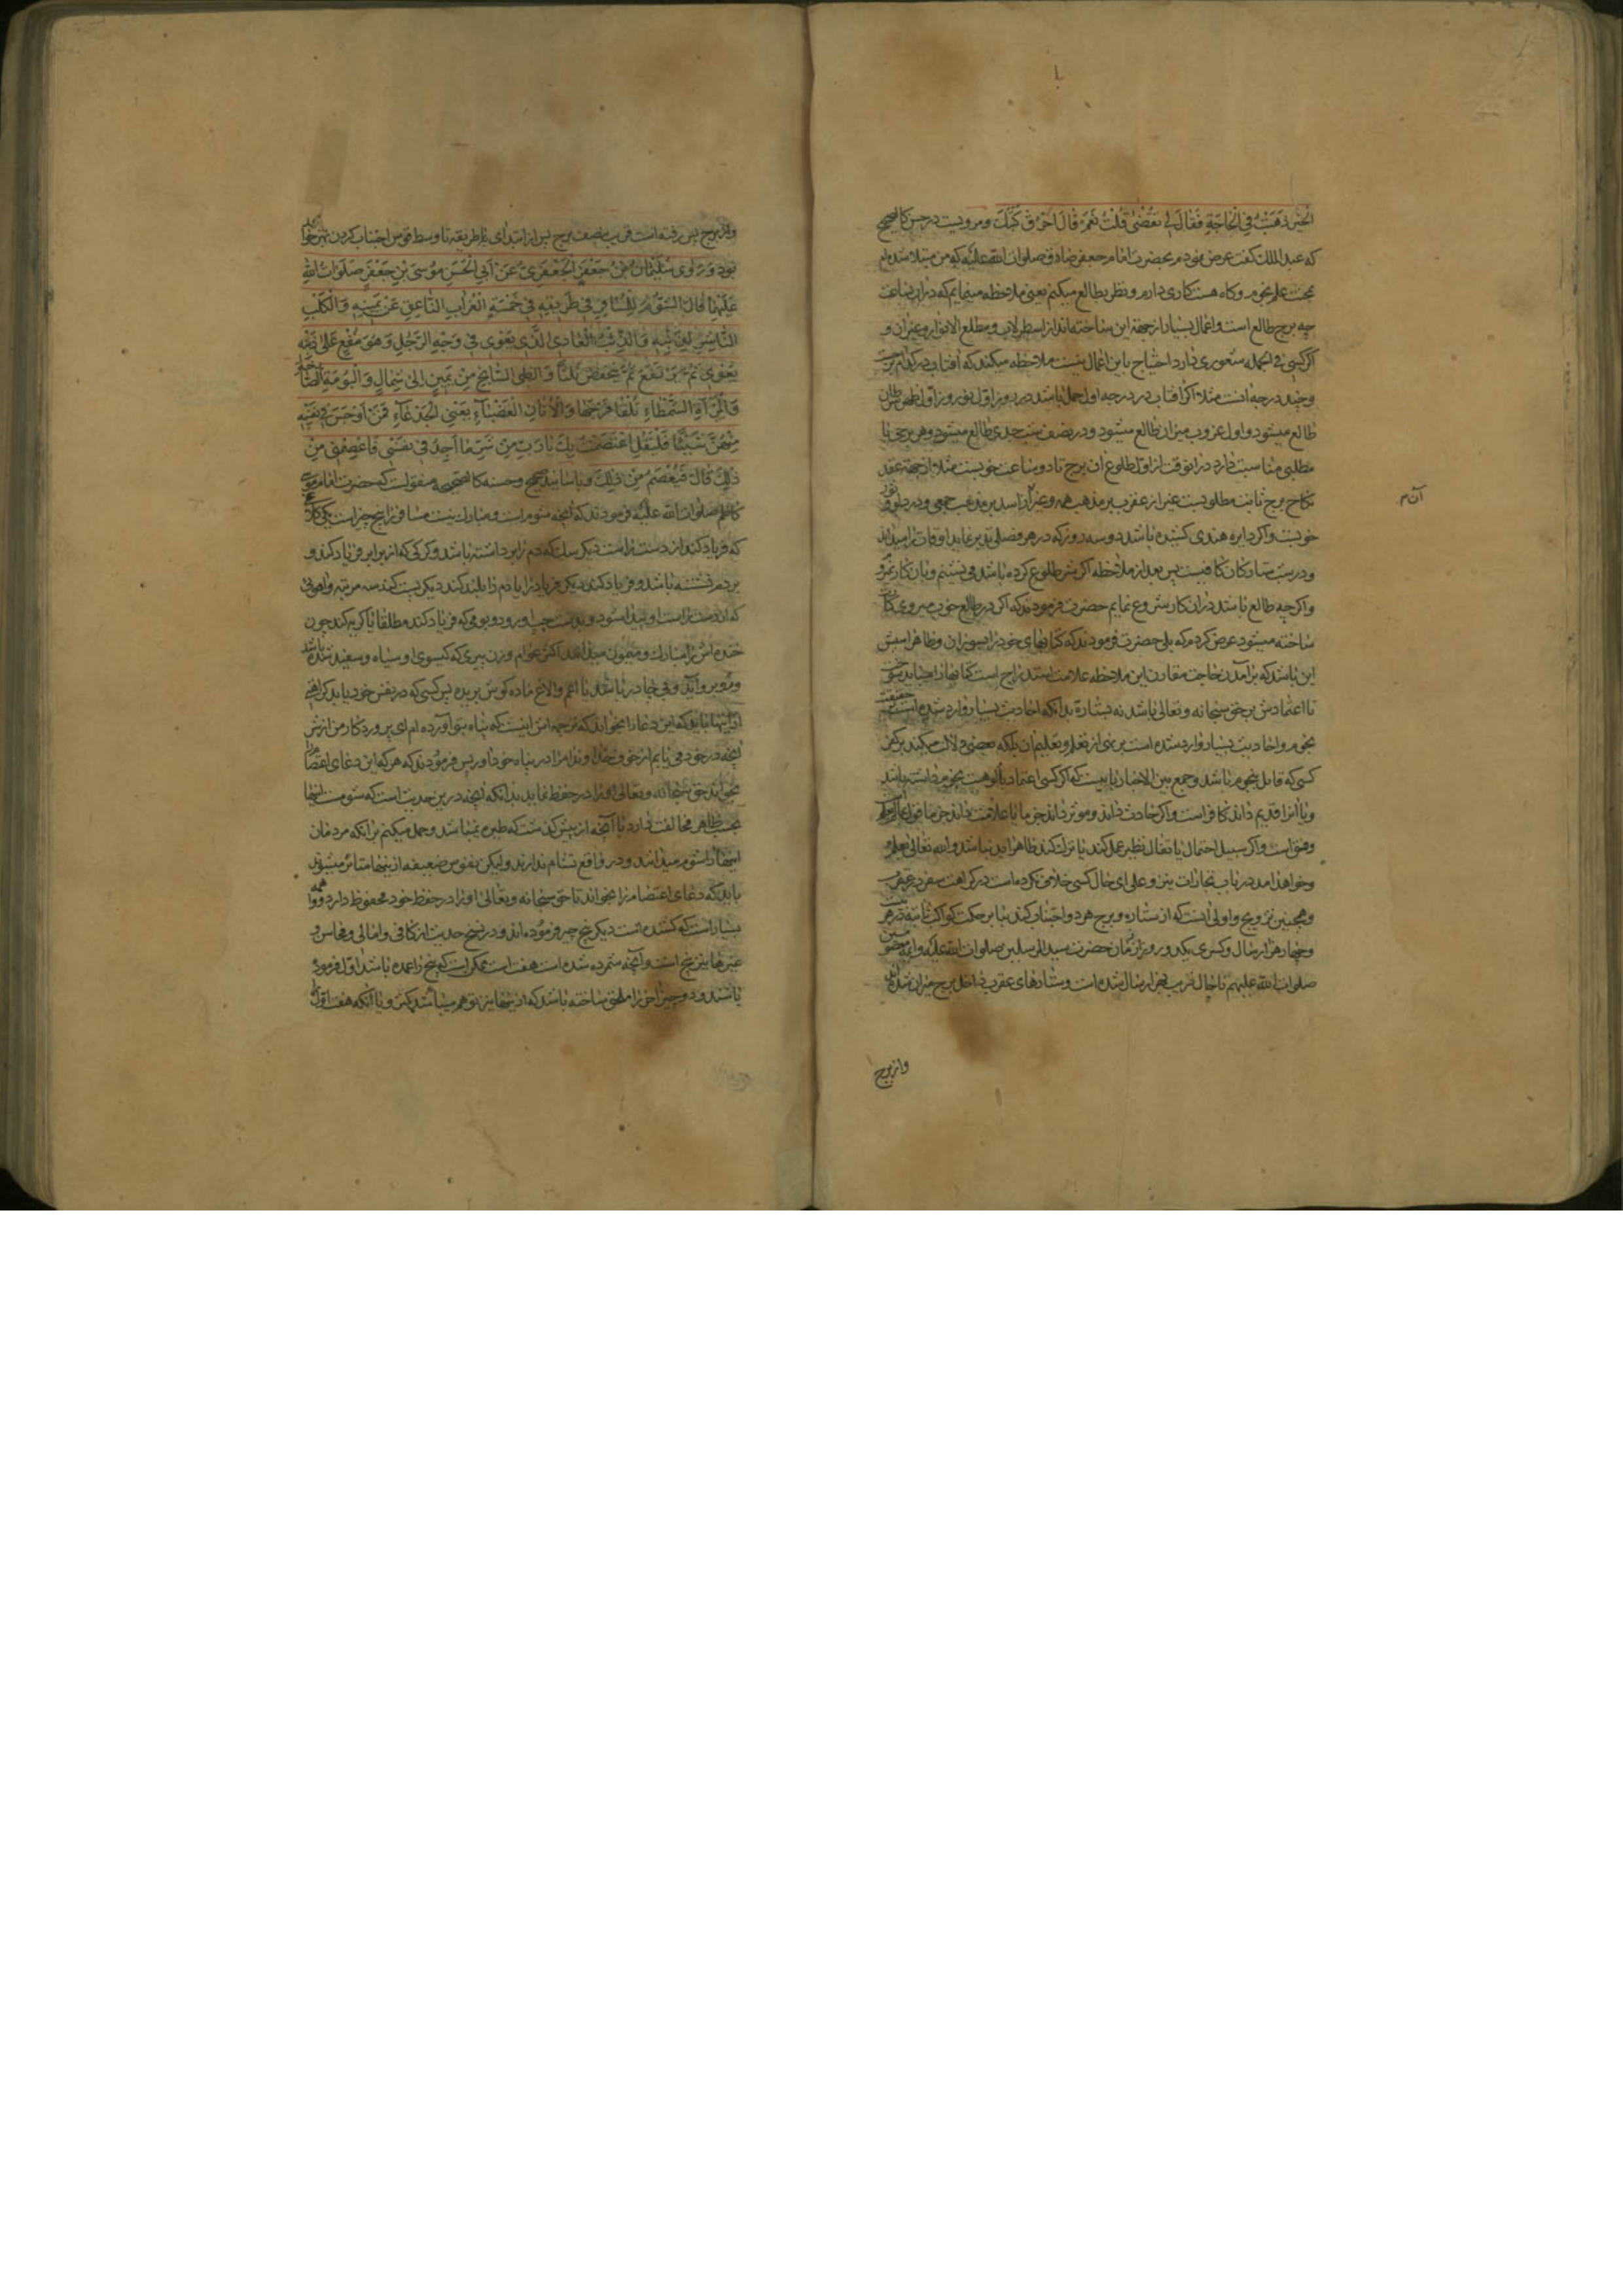 الخير ذهبت في الحاجة فقال لي تقضي قلت نعم قال احرق كتبك ومرويست در حسن كالصحيح
كه عبد الملك كفت عرض نمودم بحضرت امام جعفر صادق صلوات الله عليه كه من مبتلا شده ام
بحث علم نجوم وكاه هست كاري دارم ونظر بطالع ميكنم يعني ملاحظه مينمايم كه دران ساعت
چه برج طالع است واعمال بسيار از جهة اين ساخته اند از اسطرلاب ومطلع الانوار وغيران و
اكر كسي في الجمله شعوري دارد احتياج باين اعمال نيست ملاحظه ميكند كه آفتاب در كدام برج
وچند درجه است مثلا اكر افتاب در درجه اول حمل باشد در روز اول نوروز اول ظهر سرطان
طالع ميشود واول غروب ميزان طالع ميشود ودر نصف شب جدي طالع ميشود وهر برجي با
مطلبي مناسبت دارد درانوقت از اول طلوع ان برج تا دو ساعت خوبست مثلا از جهة عقد
نكاح برج ثابت مطلوبست غير از عقرب بر مذهب همه وغير از اسد بر مذهب جمعي ودر دلو وثور
آن م
خوبست واكر دايره هندي كشيده باشد دو سه روز كه در هر فصلي تدبر نمايد اوقات را ميداند
ودر ست صاركان كافيست پس بعد از ملاحظه اكر شر طلوع كرده باشد مي نشينم وبان كار نمي روم
واكر چه طالع باشد دران كار شروع نمايم حضرت فرمودند كه اكر در طالع خوب ميروي كارت
ساخته ميشود عرض كردم كه بلي حضرت فرمودند كه كتابهاي خود را بسوزان وظاهرا سبش
اين باشد كه برآمدن حاجت مقارن اين ملاحظه علامت استدراج است كتابها را ميبايد سوخت
تا اعتمادش بر حق سبحانه وتعالى باشد نه بستاره بدانكه احاديث بسيار وارد شده است حقيقت
نجوم واحاديث بسيار وارد شده است بر نهي از تعلم وتعليم ان بلكه بعضي دلالت ميكند بر كفر
كسي كه قايل بنجوم باشد وجمع بين الاخبار باينست كه اكر كسي اعتماد بالوهيت نجوم داشته باشد
ويا انرا قديم داند كافر است واكر حادث داند وموثر داند
وفسق است واكر سبيل احتمال يا تفال نظير عمل كند يا ترك كند ظاهرا بد نباشد والله تعالى يعلم و
وخواهد امد در باب تجارات نيز وعلى اي حال كسي خلافي نكرده است در كراهت سفر در عقرب
وهمچنين تزويج واولى انست كه از ستاره وبرج هر دو اجتناب كند بنا بر حركت كواكب ثابته در هر
وچهار هزار سال وكسري يكدور وزمان حضرت سيد المرسلين صلوات الله عليه وايمه معصومين
صلوات الله عليهم تا حال قريب بهزار سال شده است وستارهاي عقرب داخل برج ميزان شده اند
واز برج
واز برج پس رفته است قريب بنصف برج پس از ابتداي با طريقه تا وسط قوس اجتناب كردن بهتر خواهد
بود وروى سليمان بن جعفر الجعفري عن ابي الحسن موسى بن جعفر صلوات الله
عليهما قال الشؤم للمسافر في طريقه في خمسة الغراب الناعق عن يمينه والكلب
الناشر لذنبه والذئب العاوي الذي يعوي في وجه الرجل وهو مقع على ذنبه
يعوي ثم يرتفع ثم ينخفض ثلثا والظبي السانح من يمين الى شمال والبومة الصارخة
والمرأة الشمطاء تلقا فرجها والاتان العضباء يعني الجدعاء فمن اوجس في نفسه
منهن شيئا فليقل اعتصمت بك يا رب من شر ما اجد في نفسي فاعصمني من
ذلك قال فيعصم من ذلك وباسانيد صحيح وحسنه كالصحيحه منقولست كه حضرت امام موسي
كاظم صلوات الله عليه فرمودند كه آنچه شوم است ومبارك نيست مسافر را پنج چيز است يكي كلاغ
كه فرياد كند از دست راست ديكر سك كه دم را برداشته باشد وكركي كه از برابر فرياد كند و
بر دم نشسته باشد وفرياد كند ديكر فرياد را يا دم را بلند كند ديكر پست كند سه مرتبه واهويي
كه از دست راست او پيدا شود وبدست چپ او رود وبومي كه فرياد كند مطلقا يا كريه كند چون
خنده اش را مبارك وميمون ميدانند اكثر عوام وزن پيري كه كيسوي او سياه وسفيد شده باشد
وروبرو آيد وبي چادر باشد يا اعم والاغ ماده كوش بريده پس كسي كه در نفس خود يابد كراهتي
از اينها بايد كه اين دعا را بخواند كه ترجمه اش اينست كه پناه بتو آورده ام اي پروردكار من از شر
آنچه در خود مي يابم از خوف خداوندا مرا در پناه خود آور پس فرمودند كه هر كه اين دعاي اعتصام را
بخواند حق سبحانه وتعالى او را در حفظ نمايد بدانكه انچه درين حديث است كه شومست اينها
بحسب ظاهر مخالفت دارد با آنچه از پيش كذشت كه طيره نميباشد وحمل ميكنم برانكه مردمان
اينها را شوم ميدانند ودر واقع تشام ندارند وليكن نفوس ضعيفه از اينها متاثر ميشوند
بايد كه دعاي اعتصام را بخواند تا حق سبحانه وتعالى او را در حفظ خود محفوظ دارد
بسيار است كه كشنده است ديكر پنج چيز فرموده اند ودر نسخ حديث از كافي وامالي ومحاسن و
غيرها نيز پنج است وآنچه شمرده شده است هفت است ممكن است كه پنج را عمده باشد اول فرموده
باشند ودو چيز آخر را ملحق ساخته باشد كه از اينها نيز توهم ميباشد كمتر ويا آنكه هفت اول